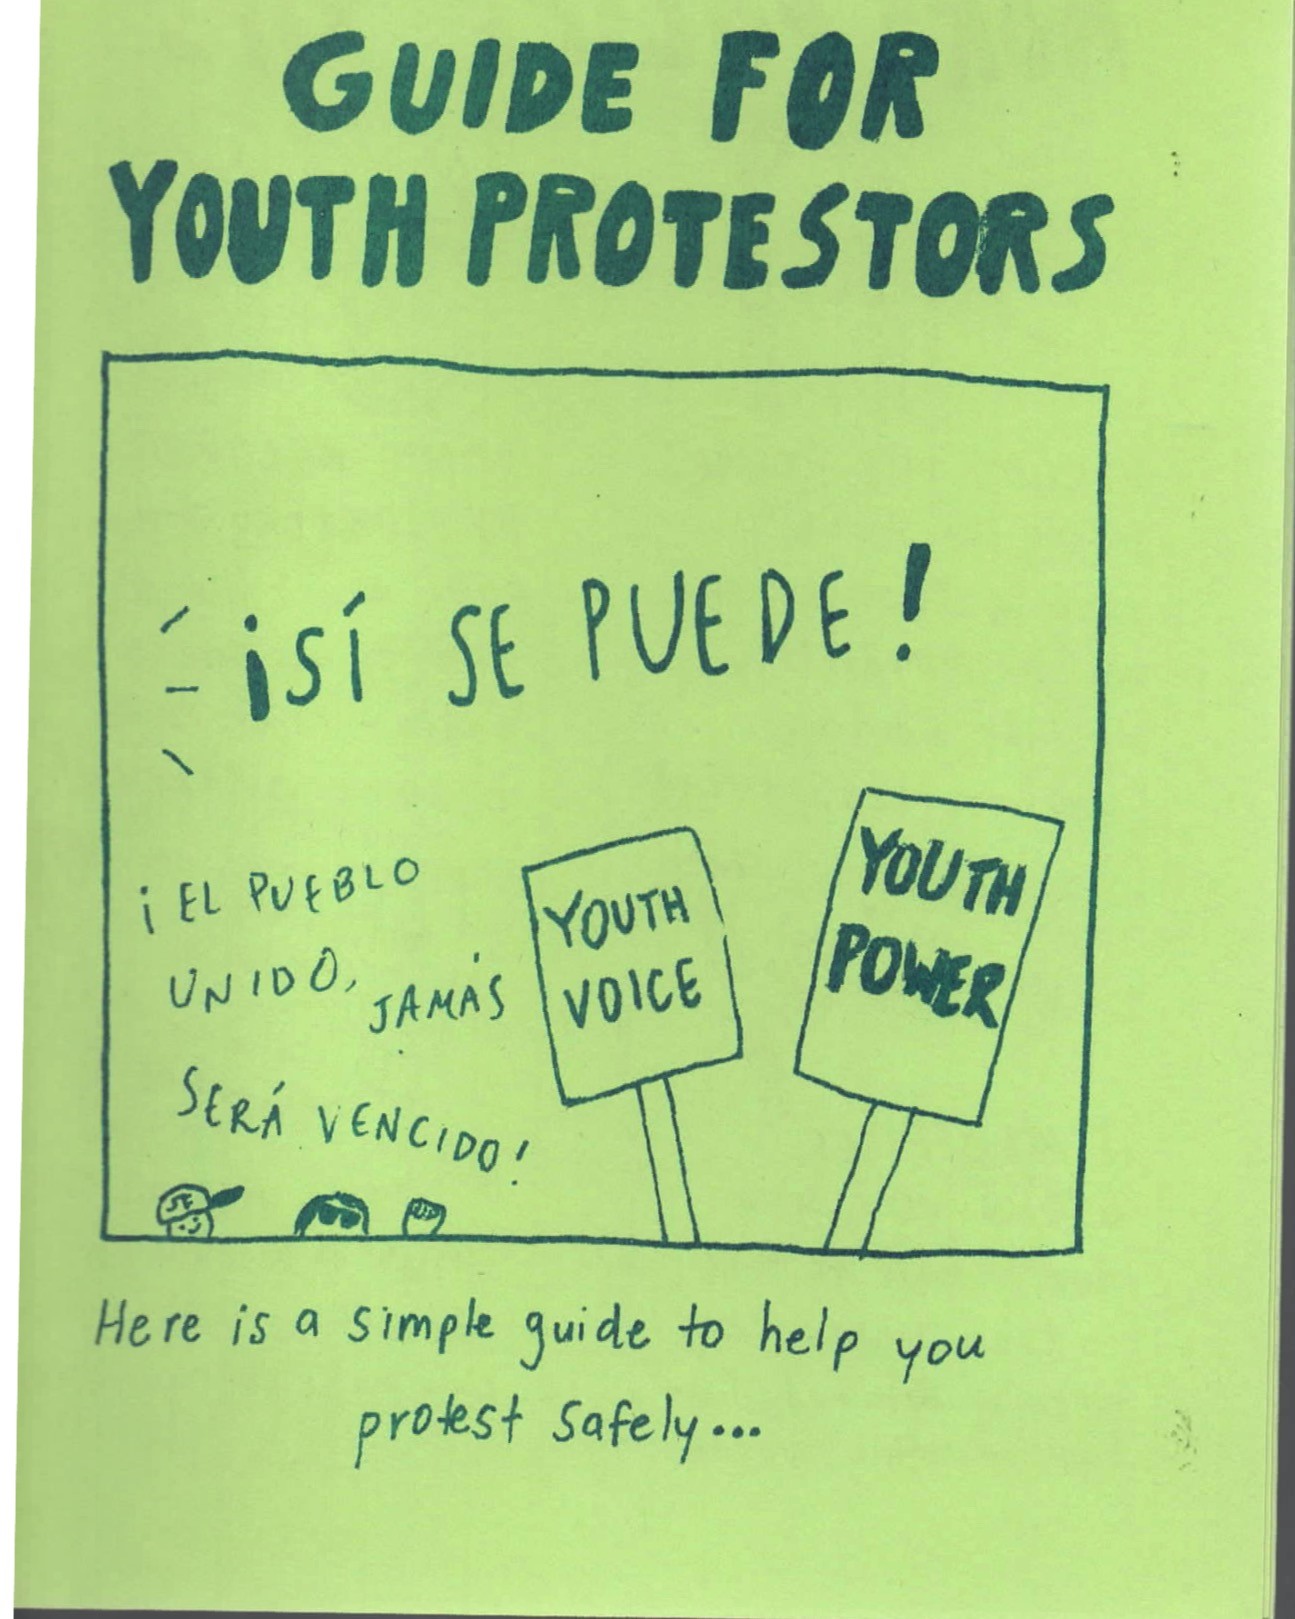 GUIDE FOR
YOUTH PROTESTORS
¡SÍ SE PUEDE!
¡EL PUEBLO
UNIDO, JAMÁS
SERÁ VENCIDO!
YOUTH
VOICE
YOUTH
POWER
Here is a simple guide to help you
protest safely...